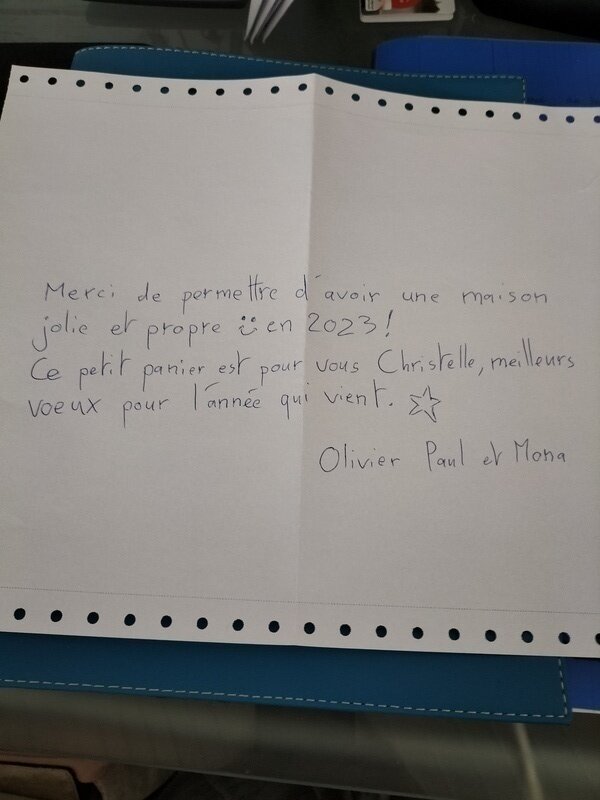 Merci de permettre d'avoir une maison
jolie et propre en 2023!
Ce petit panier est pour vous Christelle, meilleurs
voeux pour l'année qui vient.
Olivier Paul et Mona